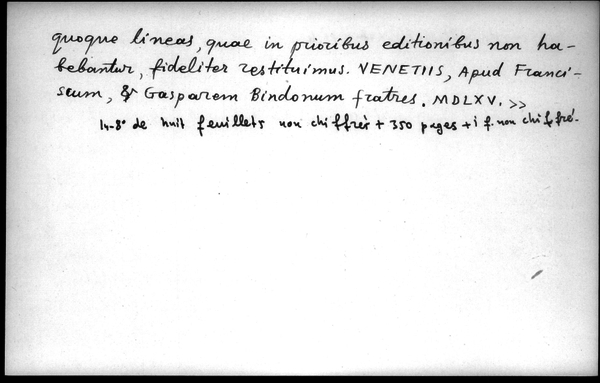 quoque lineas, quae in prioribus editionibus non ha-
bebantur, fideliter restituimus. VENETIIS, Apud Franci-
scum, & Gasparem Bindonum fratres. MDLXV. >>
In-8° de huit feuillets non chiffrés + 350 pages + 1 f. non chiffré.